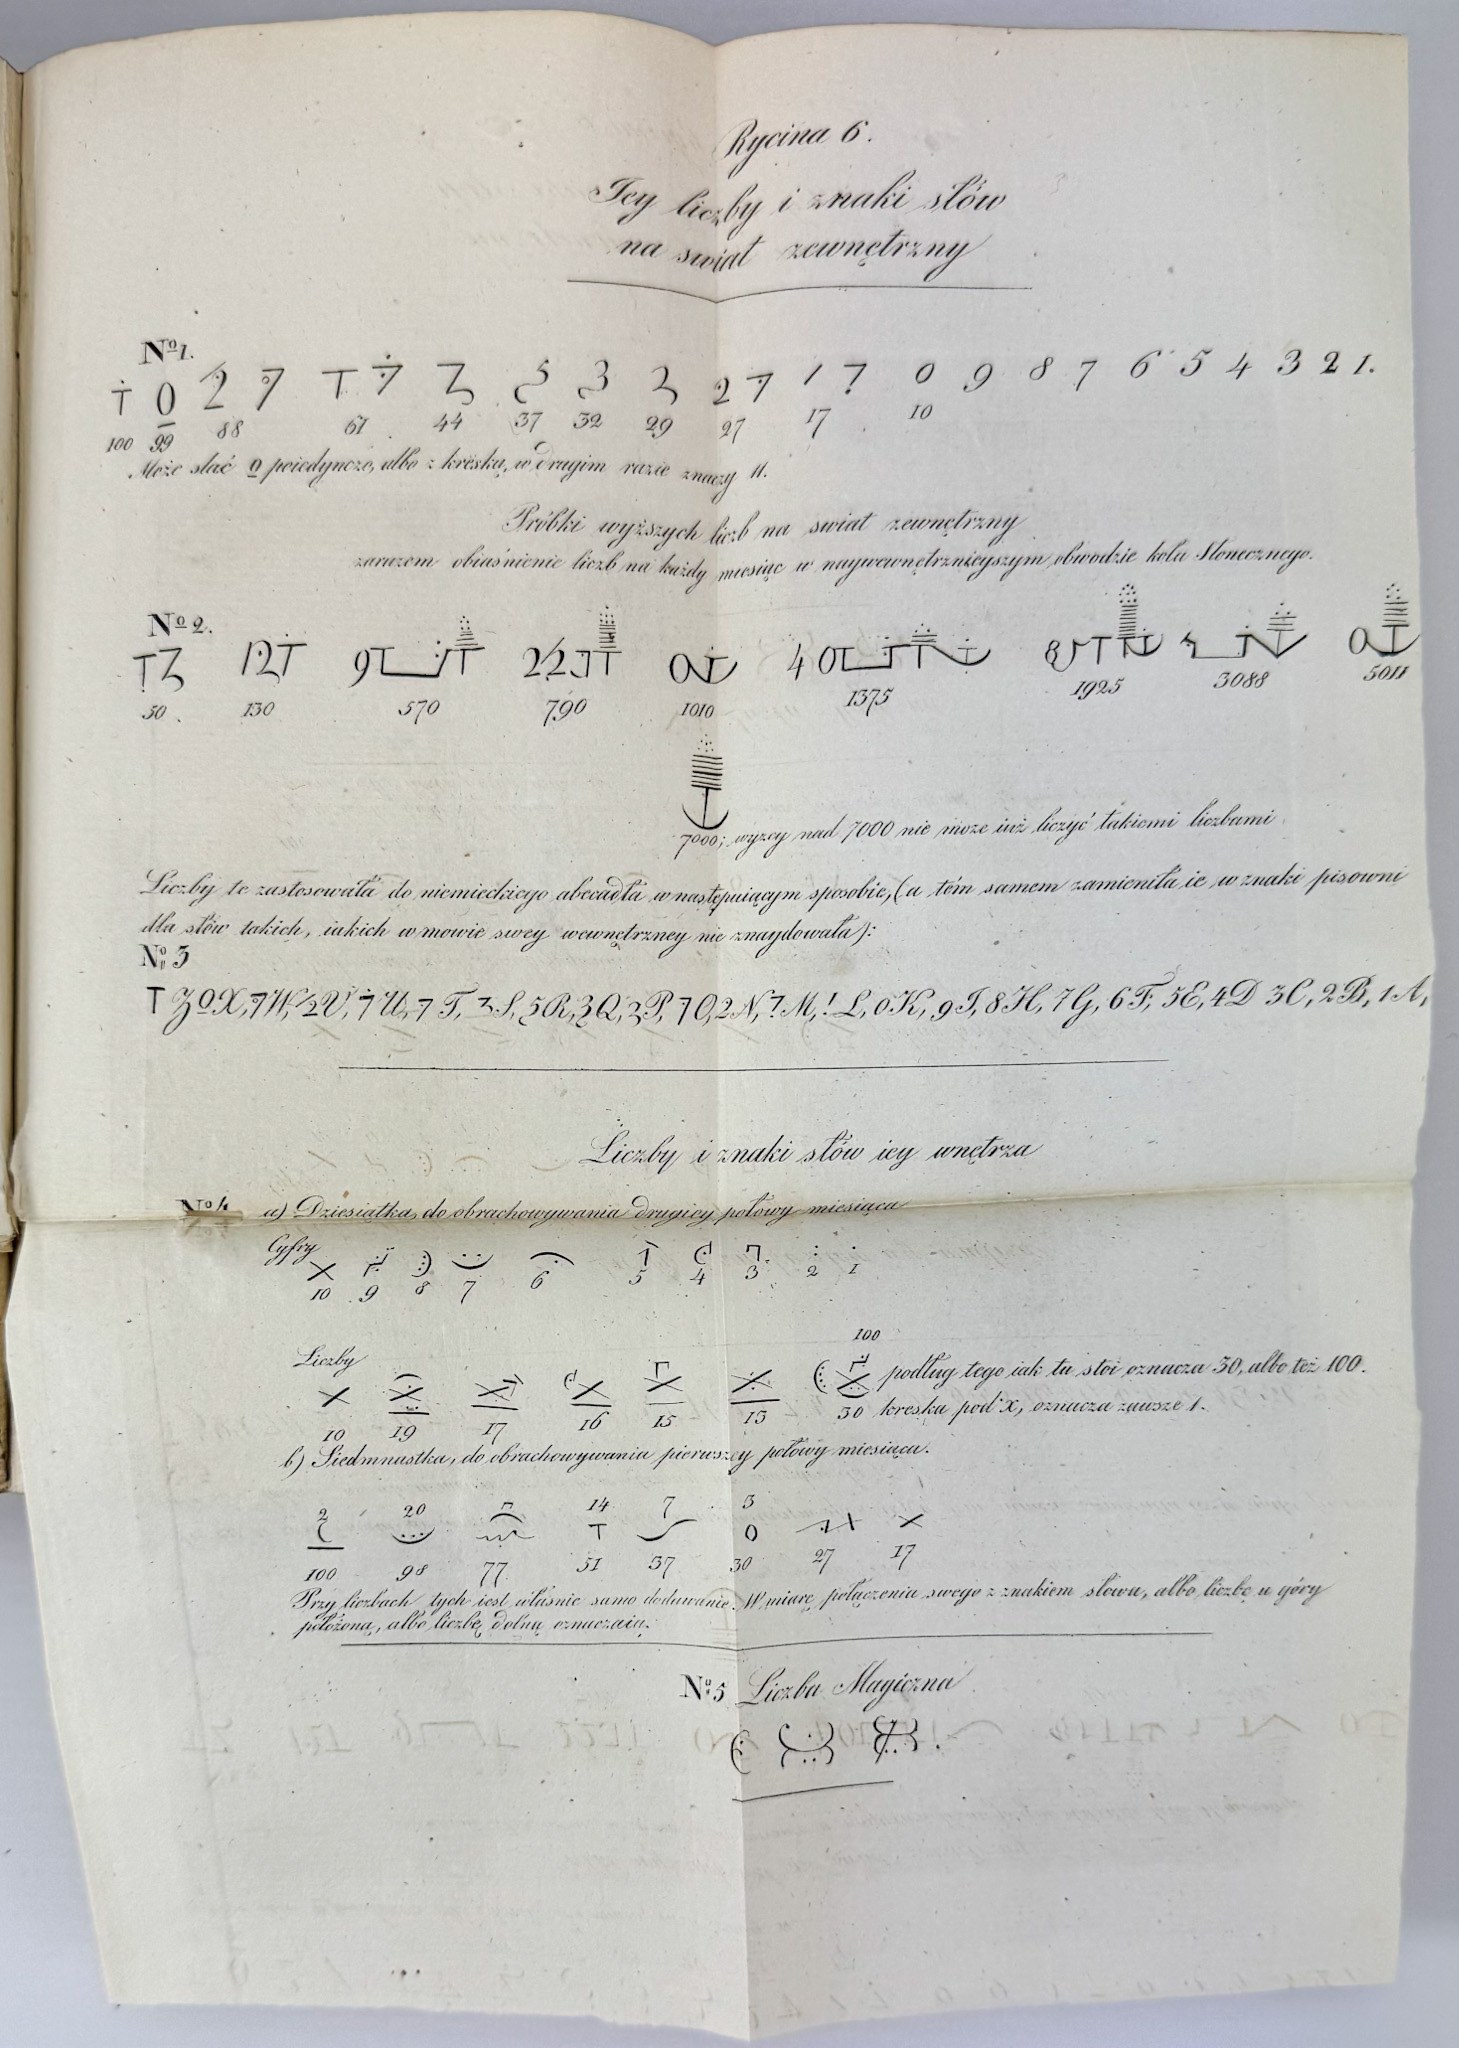 Rycina 6.
Jey liczby i znaki słów
na swiat zewnętrzny
No 1.
9 8 7 6 5 4 3 2 1.
100 99 88 61 44 37 32 29 27 17 10
Może stać 0 poiedyncze, albo z kréską, w drugim razie znaczy 11.
Próbki wyższych liczb na swiat zewnętrzny
zarazem obiaśnienie liczb na każdy miesiąc w naywewnętrznieyszym obwodzie koła Słonecznego.
No 2.
50. 130 570 790 1010 1375 1925 3088 5011
7000; wyzey nad 7000 nie może iuż liczyć takiemi liczbami
Liczby te zastosowała do niemieckiego abecadła w następuiącym sposobie, (a tém samem zamieniła ie w znaki pisowni
dla słów takich, iakich w mowie swey wewnętrzney nie znaydowała):
No 3
Z X, W, V, U, T, S, R, Q, P, O, N, M, L, 0K, 9I, 8H, 7G, 6F, 5E, 4D 3C, 2B, 1A,
Liczby i znaki słów iey wnętrza
No 4 a) Dziesiątka, do obrachowywania drugiey połowy miesiąca
Cyfry
10 9 8 7 6 5 4 3 2 1
100
Liczby
podług tego iak tu stoi oznacza 30, albo też 100.
10 19 17 16 15 13 30 kreska pod x, oznacza zawsze 1.
b) Siedmnastka, do obrachowywania pierwszey połowy miesiąca.
2 20 14 7 3
100 98 77 51 37 30 27 17
Przy liczbach tych iest właśnie samo dodawanie. W miarę połączenia swego z znakiem słowa, albo liczbę u góry
położoną, albo liczbę dolną oznaczaią.
No 5 Liczba Magiczna